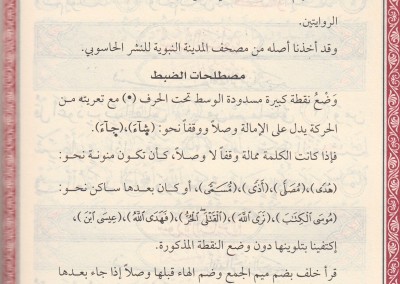 الروايتين.
وقد أخذنا أصله من مصحف المدينة النبوية للنشر الحاسوبي.
مصطلحات الضبط
وَضْعُ نقطة كبيرة مسدودة الوسط تحت الحرف (•) مع تعريته من
الحركة يدل على الإمالة وصلاً ووقفاً نحو: (شَآءَ)،(جَآءَ).
فإذا كانت الكلمة ممالة وقفاً لا وصلاً، كـأن تكون منونة نحـو:
(هُدًى)،(مُصَلًّى)،(أَذًى)،(مُسَمًّى)، أو كـان بعدهـا ساكن نحـو:
(مُوسَى ٱلْكِتَـٰبَ)،(نَرَى ٱللَّهَ)،(ٱلْقَتْلَى ٱلْحُرُّ)،(فَهَدَى ٱللَّهُ)،(عِيسَى ٱبْنَ)،
إكتفينا بتلوينها دون وضع النقطة المذكورة.
قرأ خلف بضم ميم الجمع وضم الهاء قبلها وصلاً إذا جاء بعدها